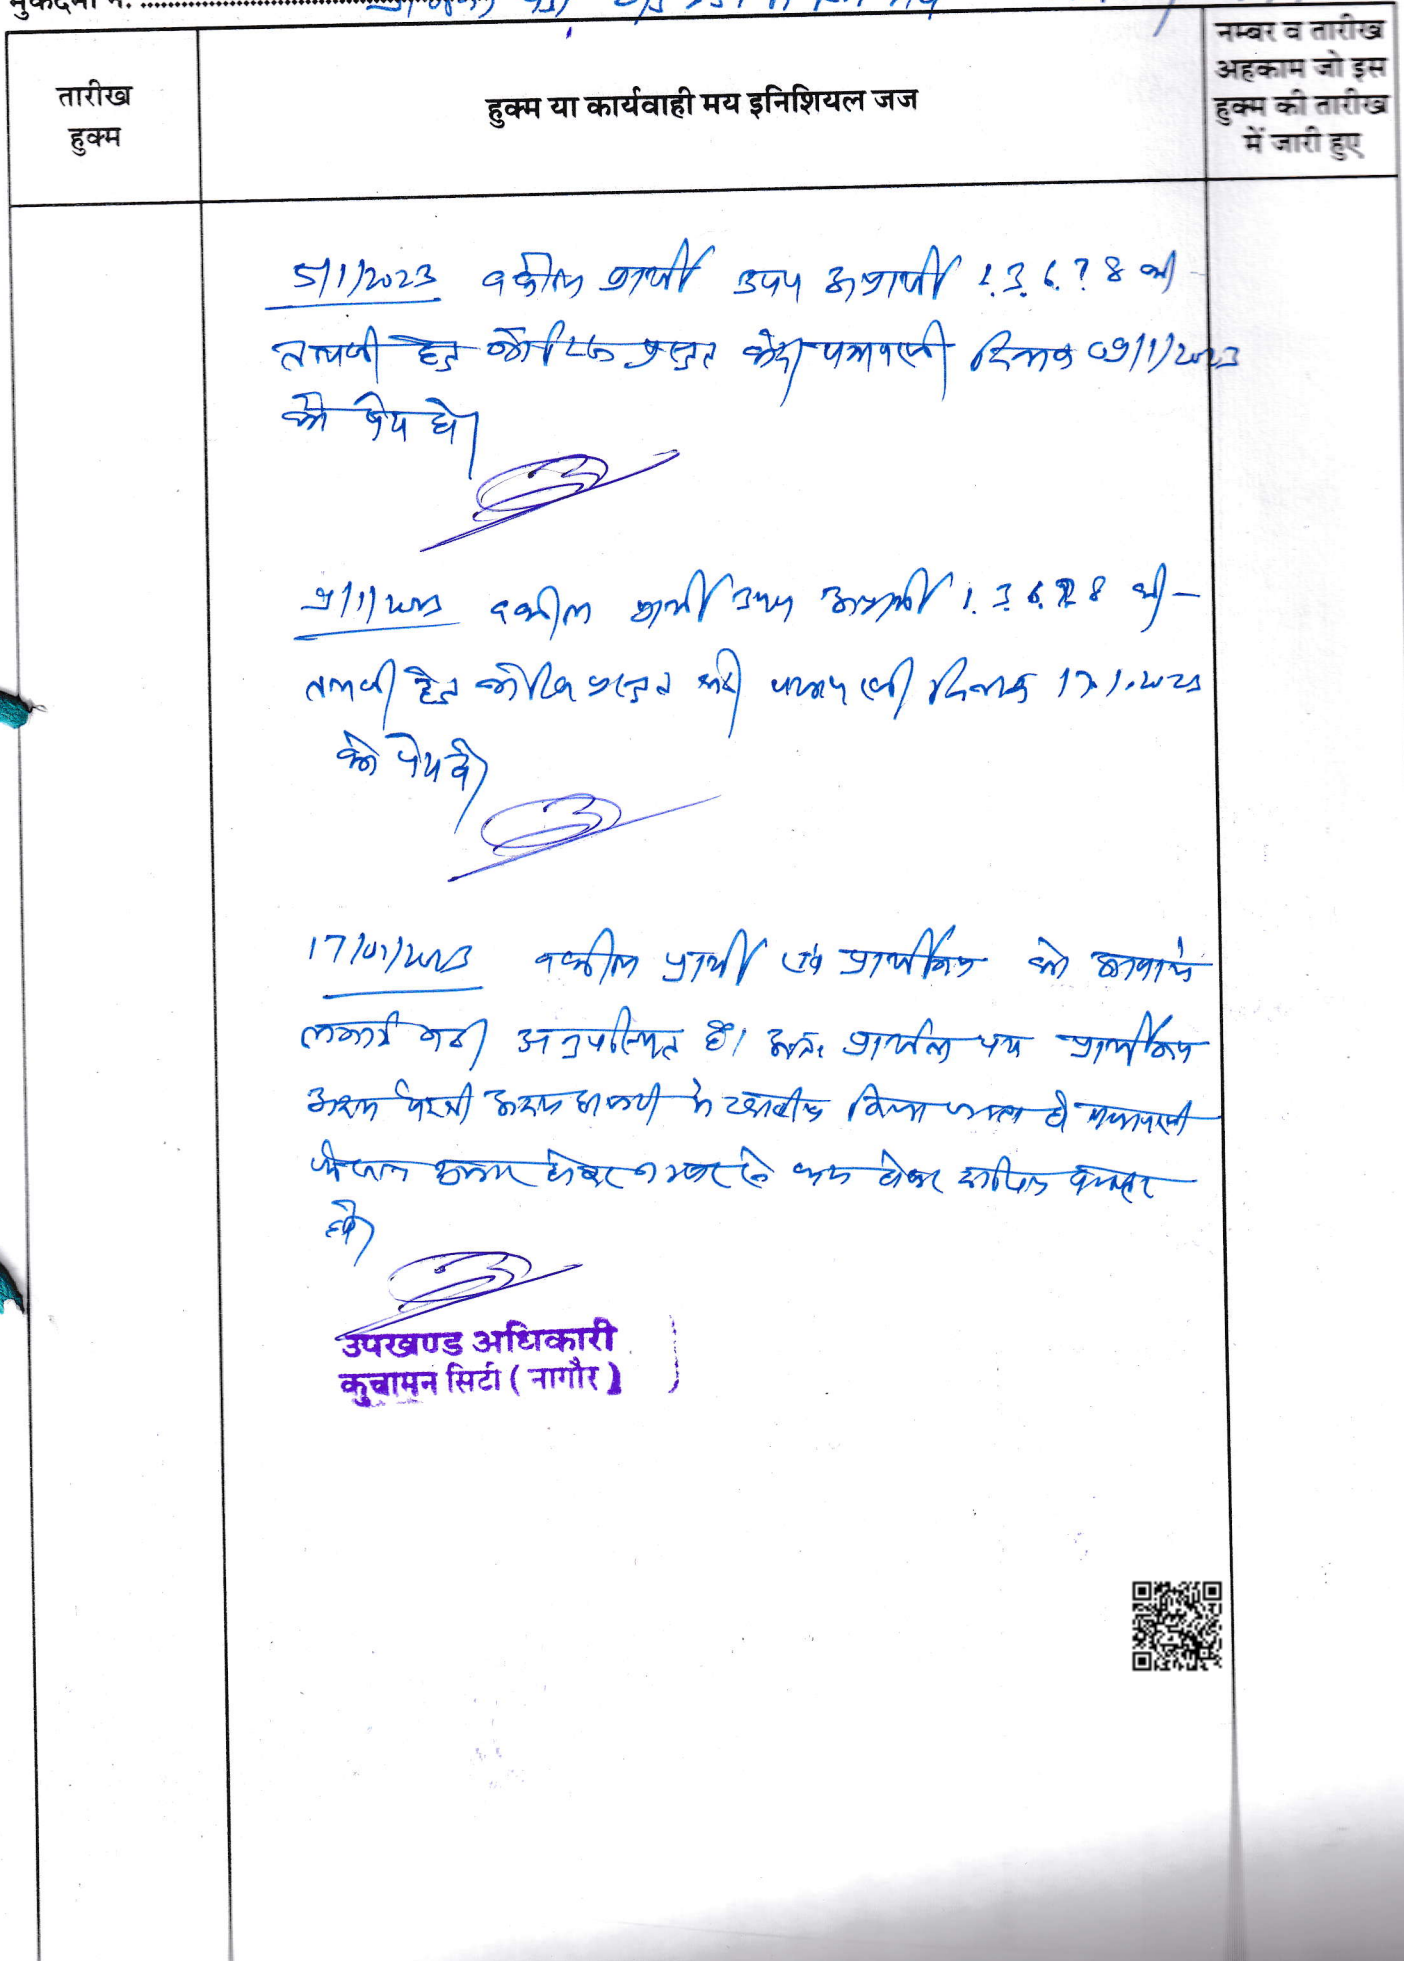 मुकदमा नं.
तारीख
हुक्म
हुक्म या कार्यवाही मय इनिशियल जज
नम्बर व तारीख
अहकाम जो इस
हुक्म की तारीख
में जारी हुए
5/1/2023 वकील प्रार्थी उपप अप्रार्थी 1. 3. 6. 7 8 की
तलबी हेतु प्रस्तुत करे। पत्रावली दिनांक 09/1/2023
को पेश हो।
9/1/2023 वकील प्रार्थी उपप अप्रार्थी 1. 3. 6. 7 8 की
तलबी हेतु प्रस्तुत करे। पत्रावली दिनांक 17.1.2023
को पेश हो।
17/01/2023 वकील प्रार्थी एवं प्रार्थीगण को आवाजे
लगाई गई। अनुपस्थित है। अतः प्रार्थना पत्र प्रार्थीगण
अदम पैरवी अदम हाजरी मे खारीज किया जाता है पत्रावली
फैसल शुमार होकर नम्बर से कम होकर दाखिल दफ्तर
हो।
उपखण्ड अधिकारी
कुचामन सिटी ( नागौर )